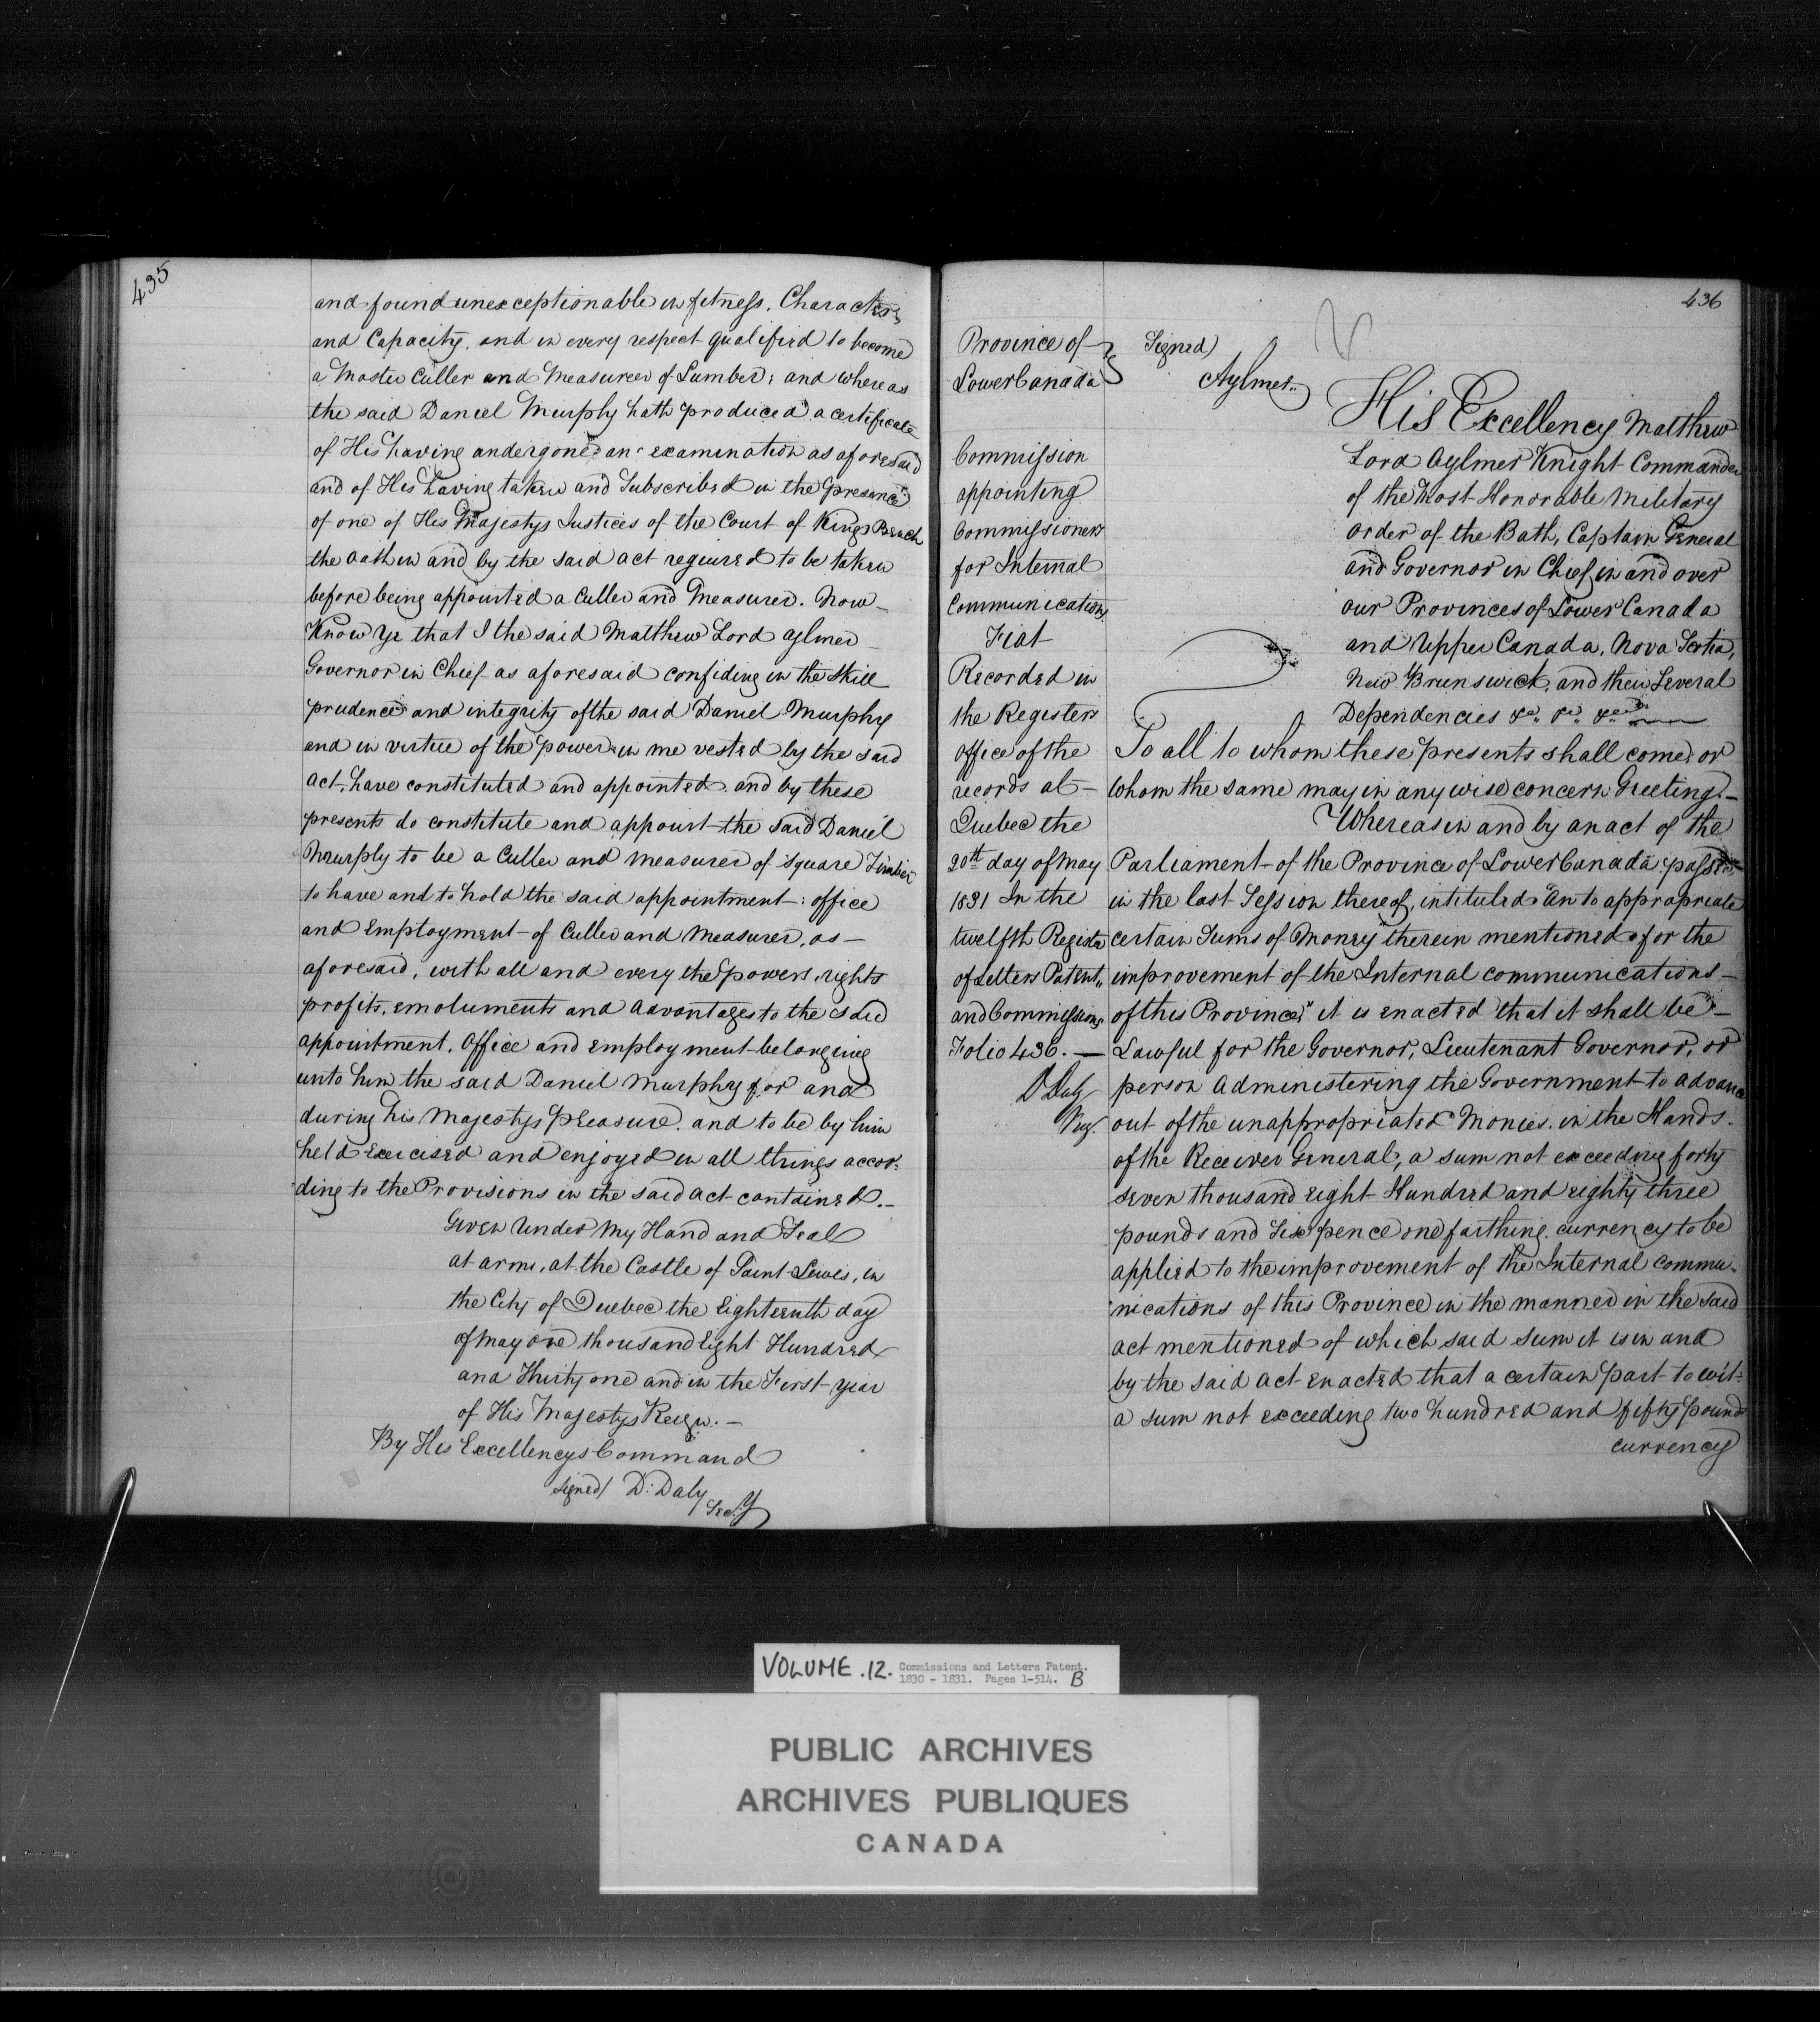 435
and found unexceptionable in fitness, Character,
and Capacity, and in every respect qualified to become
a Master Culler and Measurer of Lumber; and whereas
the said Daniel Murphy hath produced a certificate
of His having undergone an examination as aforesaid
and of His having taken and Subscribed in the presence
of one of His Majestys Justices of the Court of Kings Bench
the oath in and by the said act required to be taken
before being appointed a Culler and Measurer. Now
Know Ye that I the said Matthew Lord Aylmer
Governor in Chief as aforesaid confiding in the Skill
prudence and integrity of the said Daniel Murphy
and in virtue of the power in me vested by the said
act, have constituted and appointed and by these
presents do constitute and appoint the said Daniel
Murphy to be a Culler and Measurer of Square Timber
to have and to hold the said appointment: office
and Employment of Culler and Measurer, as
aforesaid, with all and every the powers, rights
profits, emoluments and Advantages to the said
appointment, Office and employment belonging
unto him the said Daniel Murphy for and
during his Majestys Pleasure, and to be by him
held Exercised and enjoyed in all things accor:
ding to the Provisions in the said act contained.—
Given Under My Hand and Seal
at arms, at the Castle of Saint Lewis, in
the City of Quebec the Eighteenth day
of May one thousand Eight Hundred
and Thirty one and in the First year
of His Majestys Reign.—
By His Excellencys Command
Signed/ D. Daly
Secy
436
Province of
Lower Canada
Signed)
Aylmer
Commission
appointing
Commissioners
for Internal
Communications
Fiat
Recorded in
the Registers
office of the
records at
Quebec the
20th day of May
1831 In the
twelfth Register
of Letters Patent
and Commissions
Folio 436.—
D Daly
Reg.
His Excellency Matthew
Lord Aylmer Knight Commander
of the Most Honorable Military
order of the Bath, Captain General
and Governor in Chief in and over
our Provinces of Lower Canada
and Upper Canada, Nova Scotia,
New Brunswick, and their Several
Dependencies &c. &c. &c.
To all to whom these presents shall come, or
whom the same may in any wise concern Greeting,—
Whereas in and by an act of the
Parliament of the Province of Lower Canada passed
in the last Session thereof, intituled "An to appropriate
certain Sums of Money therein mentioned for the
improvement of the Internal communications
of this Province," it is enacted that it shall be
Lawful for the Governor, Lieutenant Governor, or
person Administering the Government to Advance
out of the unappropriated Monies in the Hands
of the Receiver General, a sum not exceeding forty
seven thousand eight Hundred and eighty three
pounds and Six pence one farthing currency to be
applied to the improvement of the Internal commu:
nications of this Province in the manner in the said
act mentioned of which said sum it is in and
by the said act enacted that a certain part to wit:
a sum not exceeding two hundred and fifty pounds
currency
VOLUME .12. Commissions and Letters Patent.
1830 - 1831. Pages 1-514. B
PUBLIC ARCHIVES
ARCHIVES PUBLIQUES
CANADA